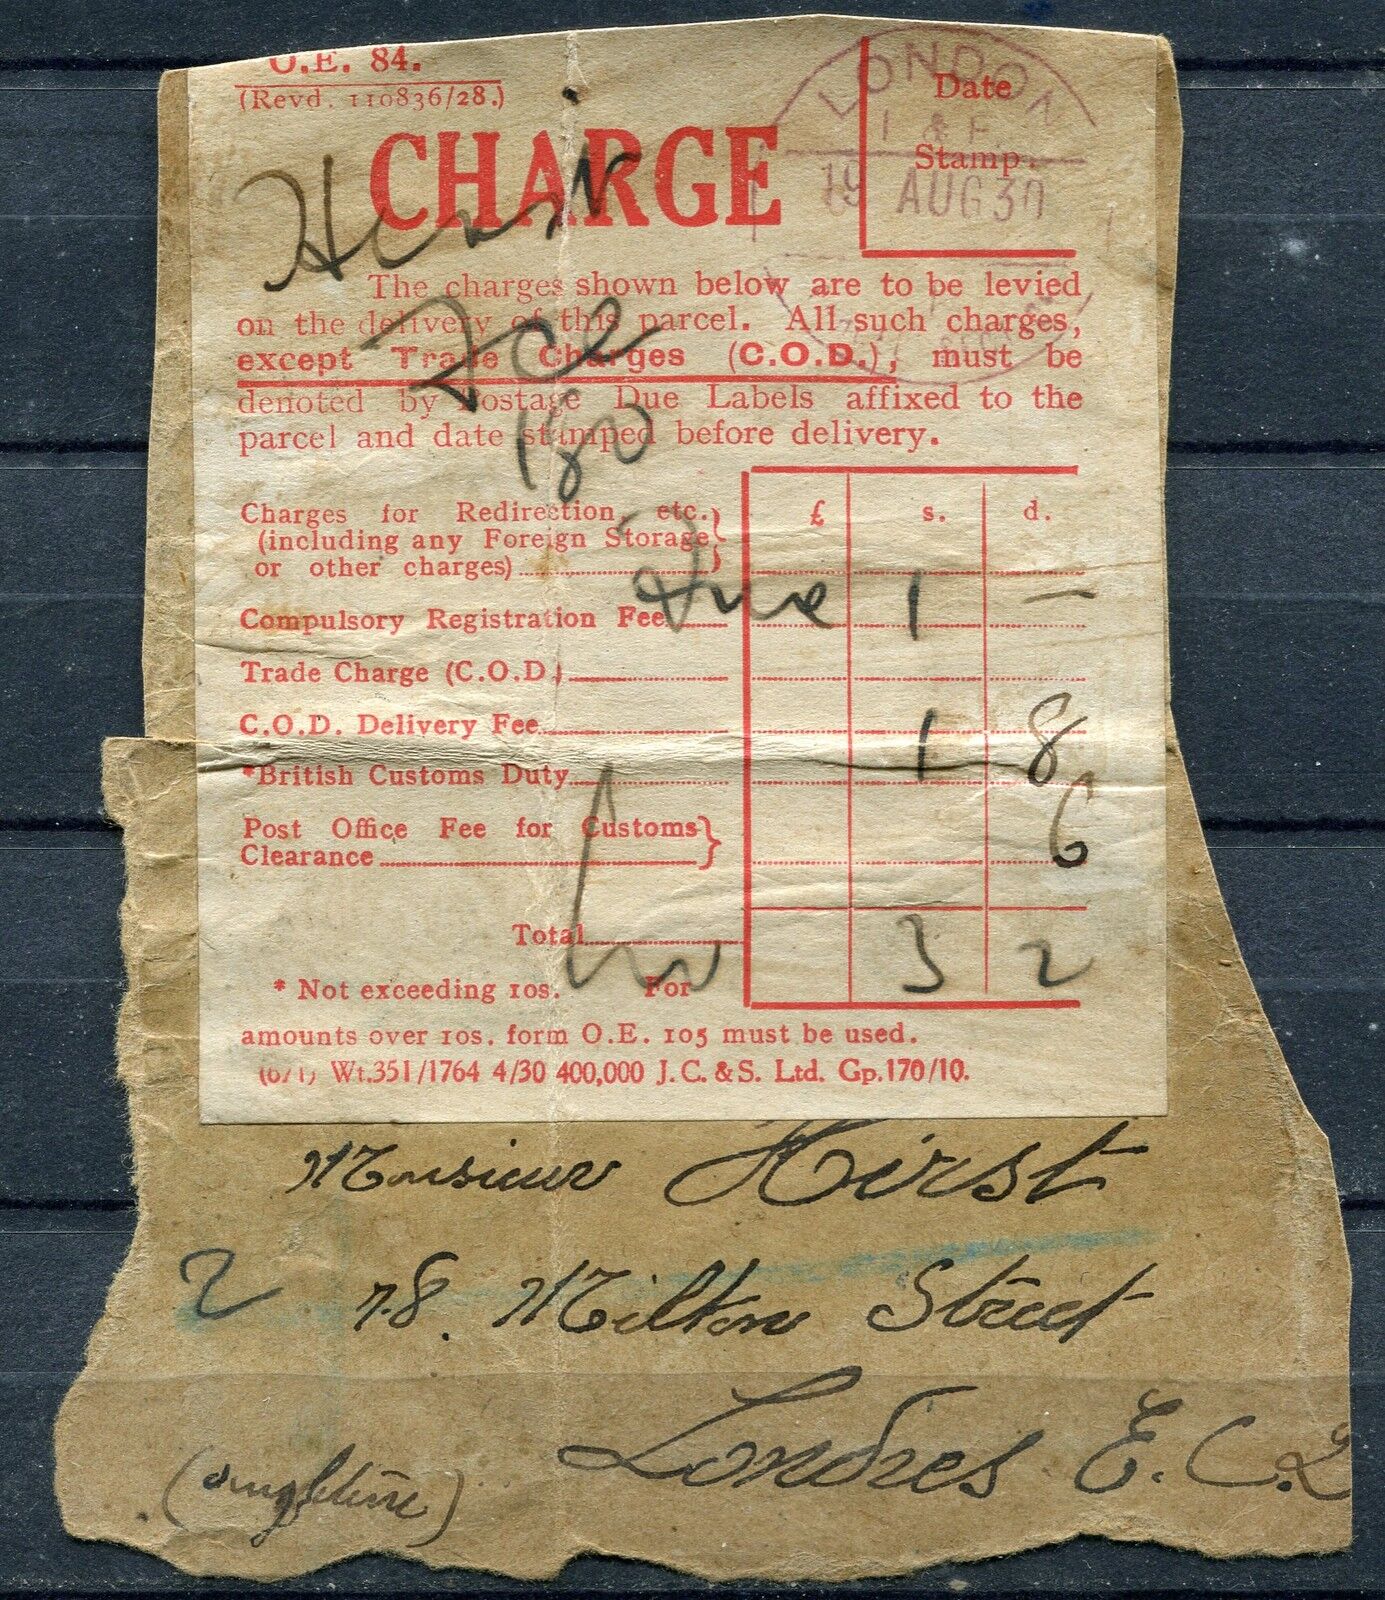 O.E. 84.
(Revd. 110836/28.)
CHARGE
Date
Stamp.
LONDON
I & F
19 AUG 30
The charges shown below are to be levied
on the delivery of this parcel. All such charges,
except Trade Charges (C.O.D.), must be
denoted by Postage Due Labels affixed to the
parcel and date stamped before delivery.
180
£ s. d.
Charges for Redirection, etc.
(including any Foreign Storage
or other charges)
Due 1 —
Compulsory Registration Fee
Trade Charge (C.O.D.)
C.O.D. Delivery Fee
*British Customs Duty 1 8
Post Office Fee for Customs
Clearance 6
Total 3 2
* Not exceeding 10s. For
amounts over 10s. form O.E. 105 must be used.
(671) Wt.351/1764 4/30 400,000 J.C.&S. Ltd. Gp.170/10.
Monsieur Hirst
2 78. Milton Street
Londres E.C.2
(Angleterre)